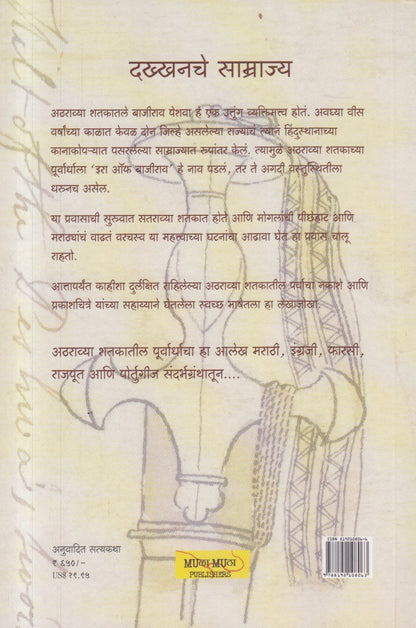 दख्खनचे साम्राज्य
अठराव्या शतकातले बाजीराव पेशवा हे एक उत्तुंग व्यक्तिमत्त्व होतं. अवघ्या वीस
वर्षांच्या काळात केवळ दोन जिल्हे असलेल्या राज्याचं त्यानं हिंदुस्थानाच्या
कानाकोपऱ्यात पसरलेल्या साम्राज्यात रूपांतर केलं. त्यामुळे अठराव्या शतकाच्या
पूर्वार्धाला 'इरा ऑफ बाजीराव' हे नाव पडलं, तर ते अगदी वस्तुस्थितीला
धरूनच असेल.
या प्रवासाची सुरुवात सतराव्या शतकात होते आणि मोगलांची पीछेहाट आणि
मराठ्यांचं वाढतं वरचस्व या महत्त्वाच्या घटनांचा आढावा घेत हा प्रवास चालू
राहतो.
आत्तापर्यंत काहीशा दुर्लक्षित राहिलेल्या अठराव्या शतकातील पर्वाचा नकाशे आणि
प्रकाशचित्रे यांच्या सहाय्याने घेतलेला स्वच्छ भाषेतला हा लेखाजोखा.
अठराव्या शतकातील पूर्वार्धाचा हा आलेख मराठी, इंग्रजी, फारसी,
राजपूत आणि पोर्तुगीज संदर्भग्रंथातून....
अनुवादित सत्यकथा
₹ ६५०/-
US$ १९.९५
MUळा-MUठा
PUBLISHERS